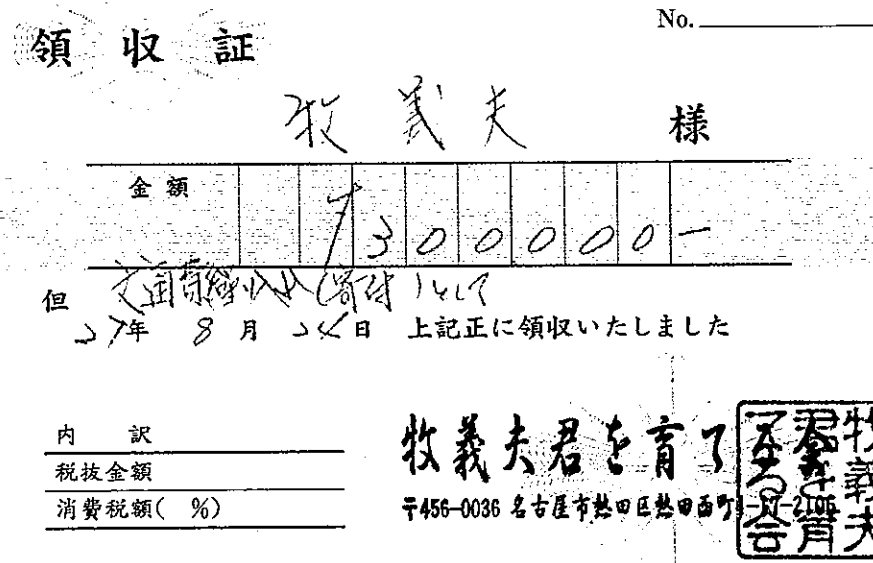 No.
領収証
牧義夫 様
金額
¥300000-
但 交通 (寄付)として
27年 8月 24日 上記正に領収いたしました
内訳
税抜金額
消費税額( %)
牧義夫君を育てる会
〒456-0036 名古屋市熱田区熱田西町
牧義夫
君を育
てる会